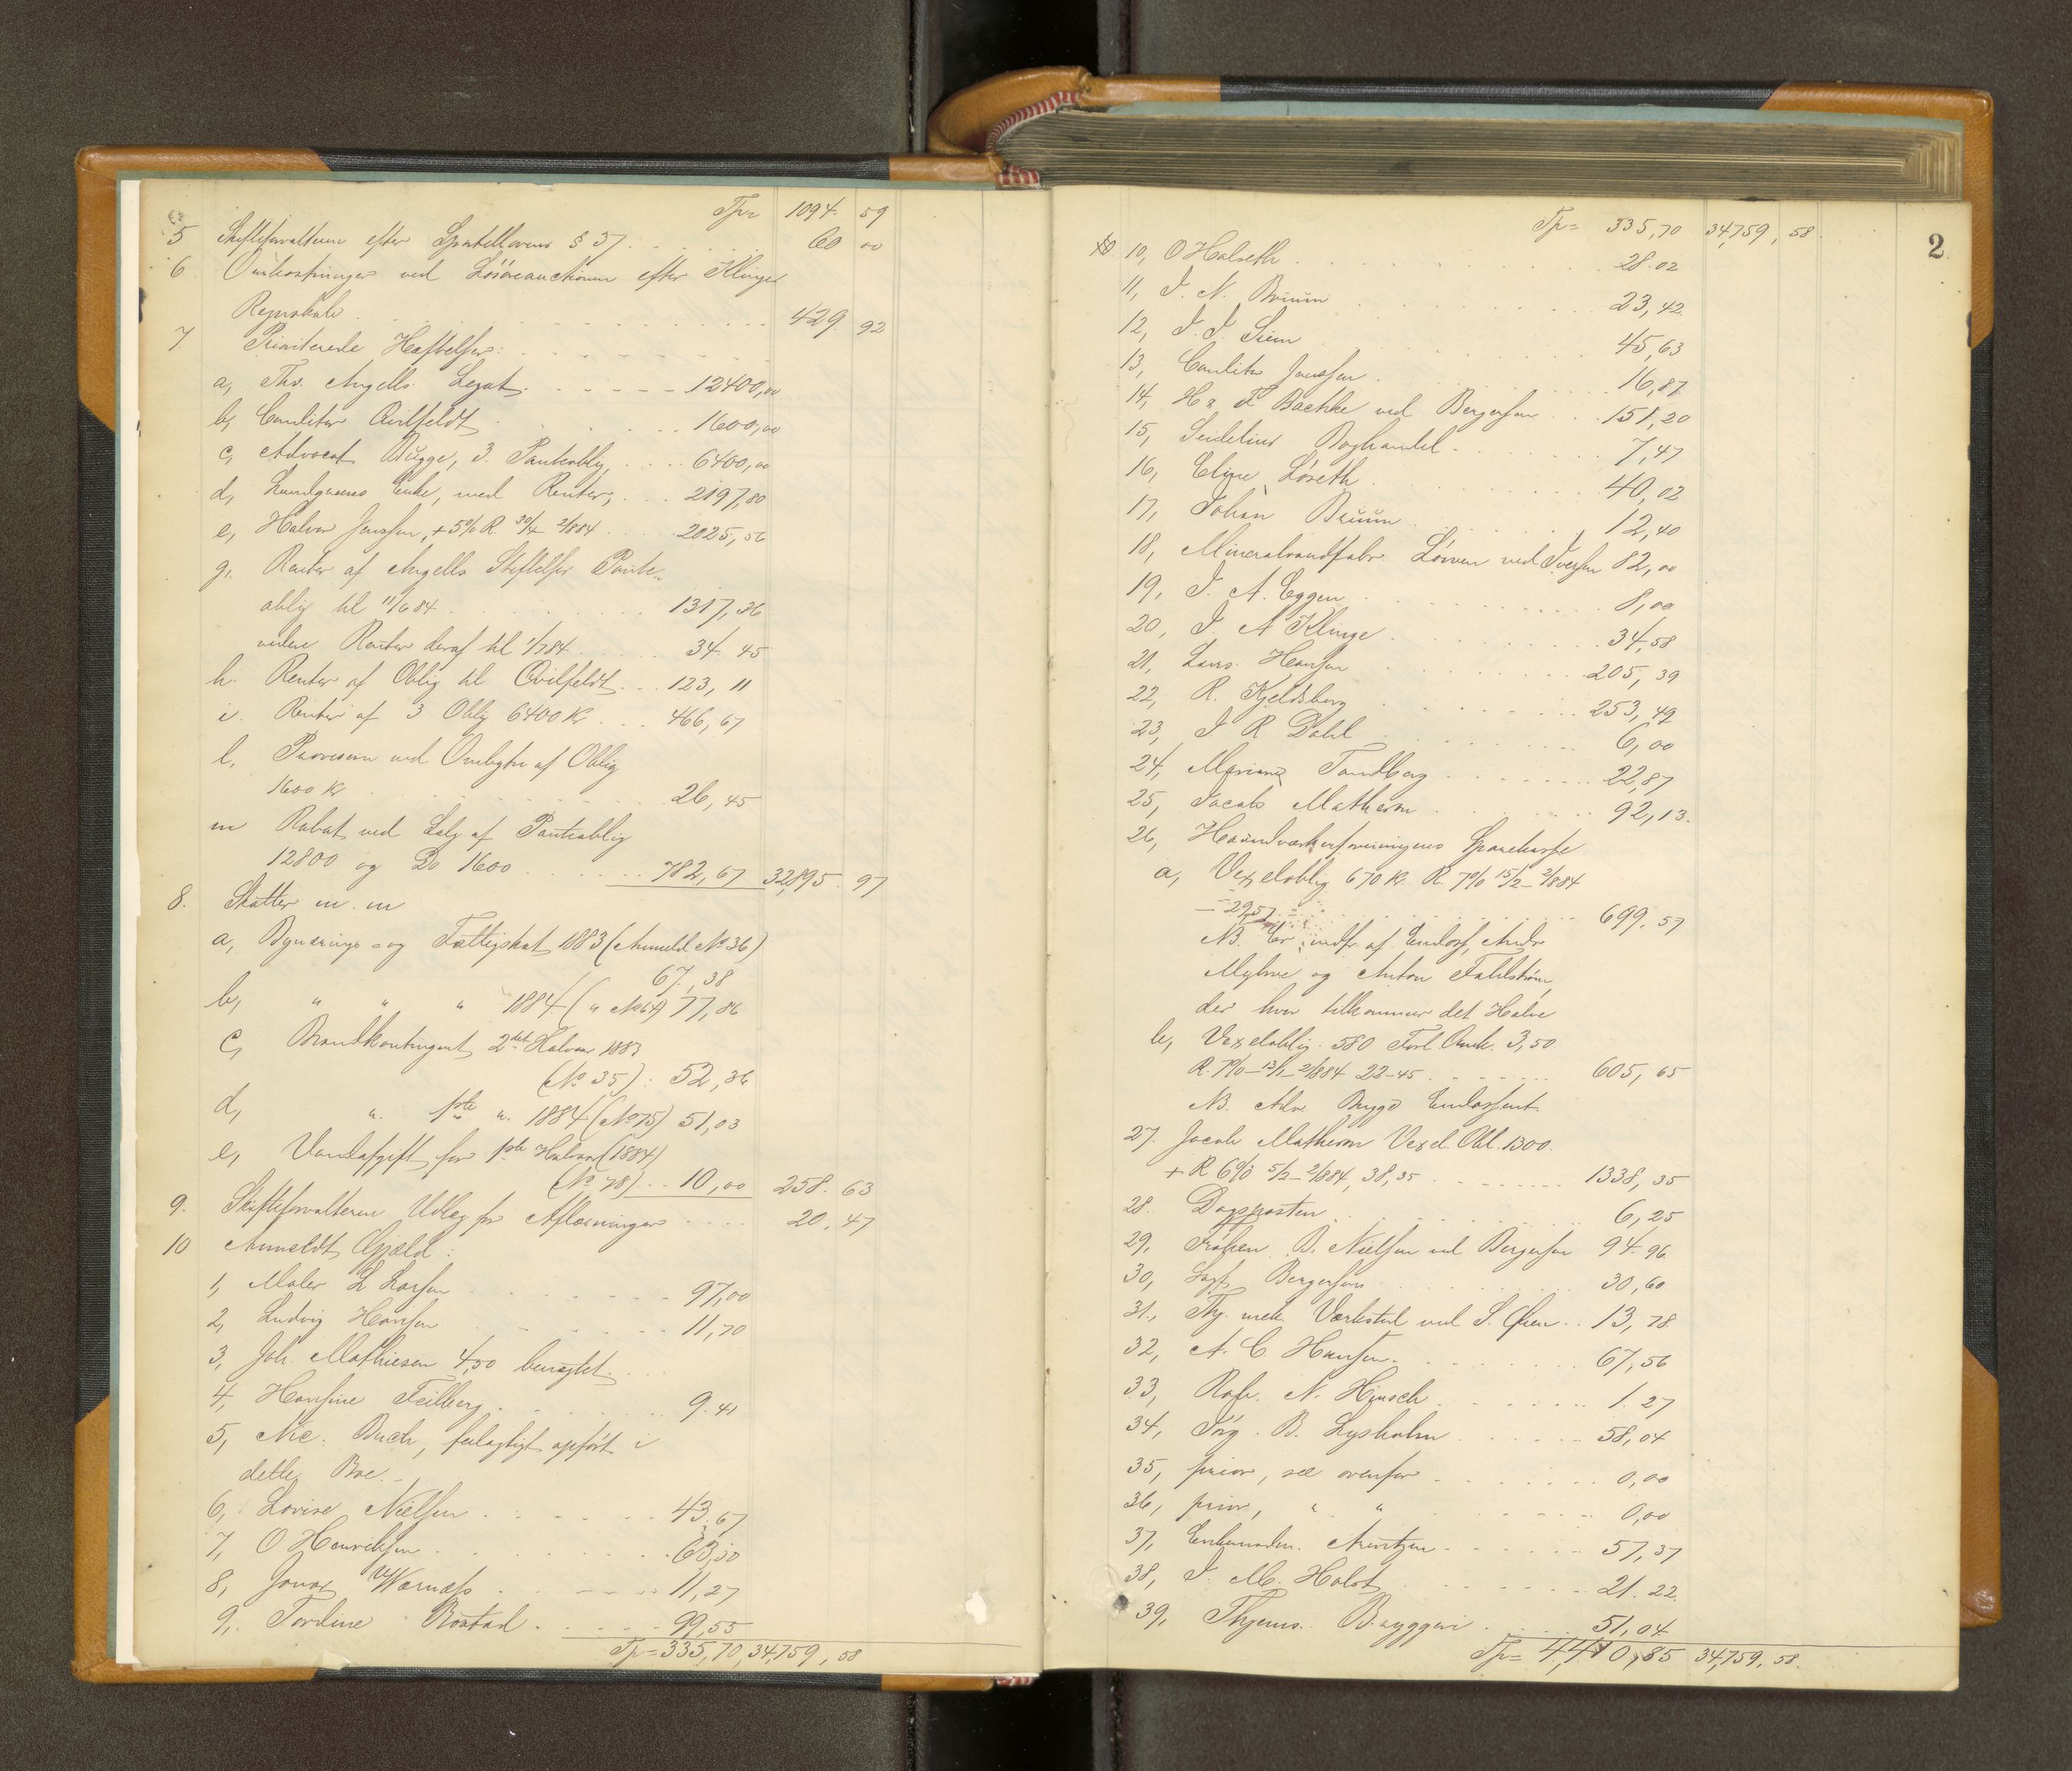 Tp= 1094. 59
5 Skifteforvalteren efter Sportelloven § 37 60 00
6 Omkostninger ved Løsøreauctionen efter Klinges
Regnskab 429 92
7. Prioriterede Hæftelser:
a, Ths. Angells Legat 12400,00
b, Conditor Qvilfeldt 1600,00
c, Advocat Bugge, 3. Panteoblig, 6400,00
d, Lundgreens Enke, med Renter, 2197,80
e, Halvor Jenssen, + 5% R 30/4 2/8 84 2025,56
g, Renter af Angells Stiftelser Pante-
oblig til 11/6 84 1317,36
videre Renter deraf til 1/7 84 34. 45
h. Renter af Oblig til Qvilfeldt 123, 11
i. Renter af 3 Oblig 6400 Kr 466,67
l, Provision ved Ombytn af Oblig
1600 Kr 26,45
m Rabat ved Salg af Panteoblig
12800 og Do 1600 782,67 32,895. 97
8. Skatter m. m
a, Bynærings- og Fattigskat 1883 (Anmeld. No 36)
67,38
b, " " " 1884 (" No 64) 77,86
c, Brandkontingent 2det Halvaar 1883
(No 35): 52,36
d, " 1ste " 1884 (No 75) 51,03
e, Vandafgift for 1ste Halvaar (1884)
(No 78) 10,00 258. 63
9. Skifteforvalteren Udlæg for Aflæsninger 20. 47
10 Anmeldt Gjæld:
1, Maler L Larsen 97,00
2, Ludvig Hansen 11,70
3, Joh. Mathiesen 4,50 benægtet.
4, Hansine Feilberg 9. 41
5, Nic. Buch, feilagtigt opført i
dette Boe.
6, Lovise Nielsen 43,67
7, O Henriksen 63,30
8, Jonas Wærnæss 11,27
9, Tordine Rostad 99,55
Tp= 335,70, 34,759, 58
2
Tp= 335,70 34,759, 58
10, O Halseth 28.02
11, J. N. Bruun 23,42
12, J. J. Siem 45,63
13, Conditor Jenssen 16,87
14, H & F Bachke ved Bergersen 151,20
15, Seidelius Boghandel 7,47
16, Eline Løseth 40,02
17, Johan Bruun 12,40
18, Mineralvandfabr. Løven ved Iversen 82,00
19, J. A. Eggen 8,00
20, J. A Klinge 34,58
21, Lars Hansen 205,39
22, R. Kjeldsberg 253,49
23, J R Dahl 6,00
24, Mariane Tandberg 22,87
25, Jacob Matheson 92,13.
26, Haandværkerforeningens Sparekasse
a, Vexeloblig 670 Kr R. 7% 15/2 - 2/8 84
= 29,57 = 699. 57
NB. Er indfr. af Endoss, Andr
Myhre og Anton Fahlstrøm,
der hver tilkommer det Halve
b, Vexeloblig. 580 Forl Omk. 3,50
R. 7% - 13/1 - 2/8 84 22-45 605,65
NB. Adv. Bugge Endossent.
27. Jacob Matheson Vexel. Obl. 1300.
+ R 6% 5/2 - 2/8 84, 38,35 1338,35
28. Dagsposten 6,25
29, Frøken B. Nielsen ved Bergersen 94. 96
30, Sagf. Bergersen 30,60
31., Thj. mek. Værksted ved S. Øien 13,78.
32, A. C Hansen 67,56
33, N. Hirsch 1. 27
34, Jørg. B. Lysholm 58,04
35, prior, see ovenfor 0,00
36, prior, " " 0,00
37, Enkemadm. Arentzen 57,37
38, J. M. Holst 21. 22.
39, Thjems. Bryggeri 51,04
Tp= 4,410,85 34,759. 58.